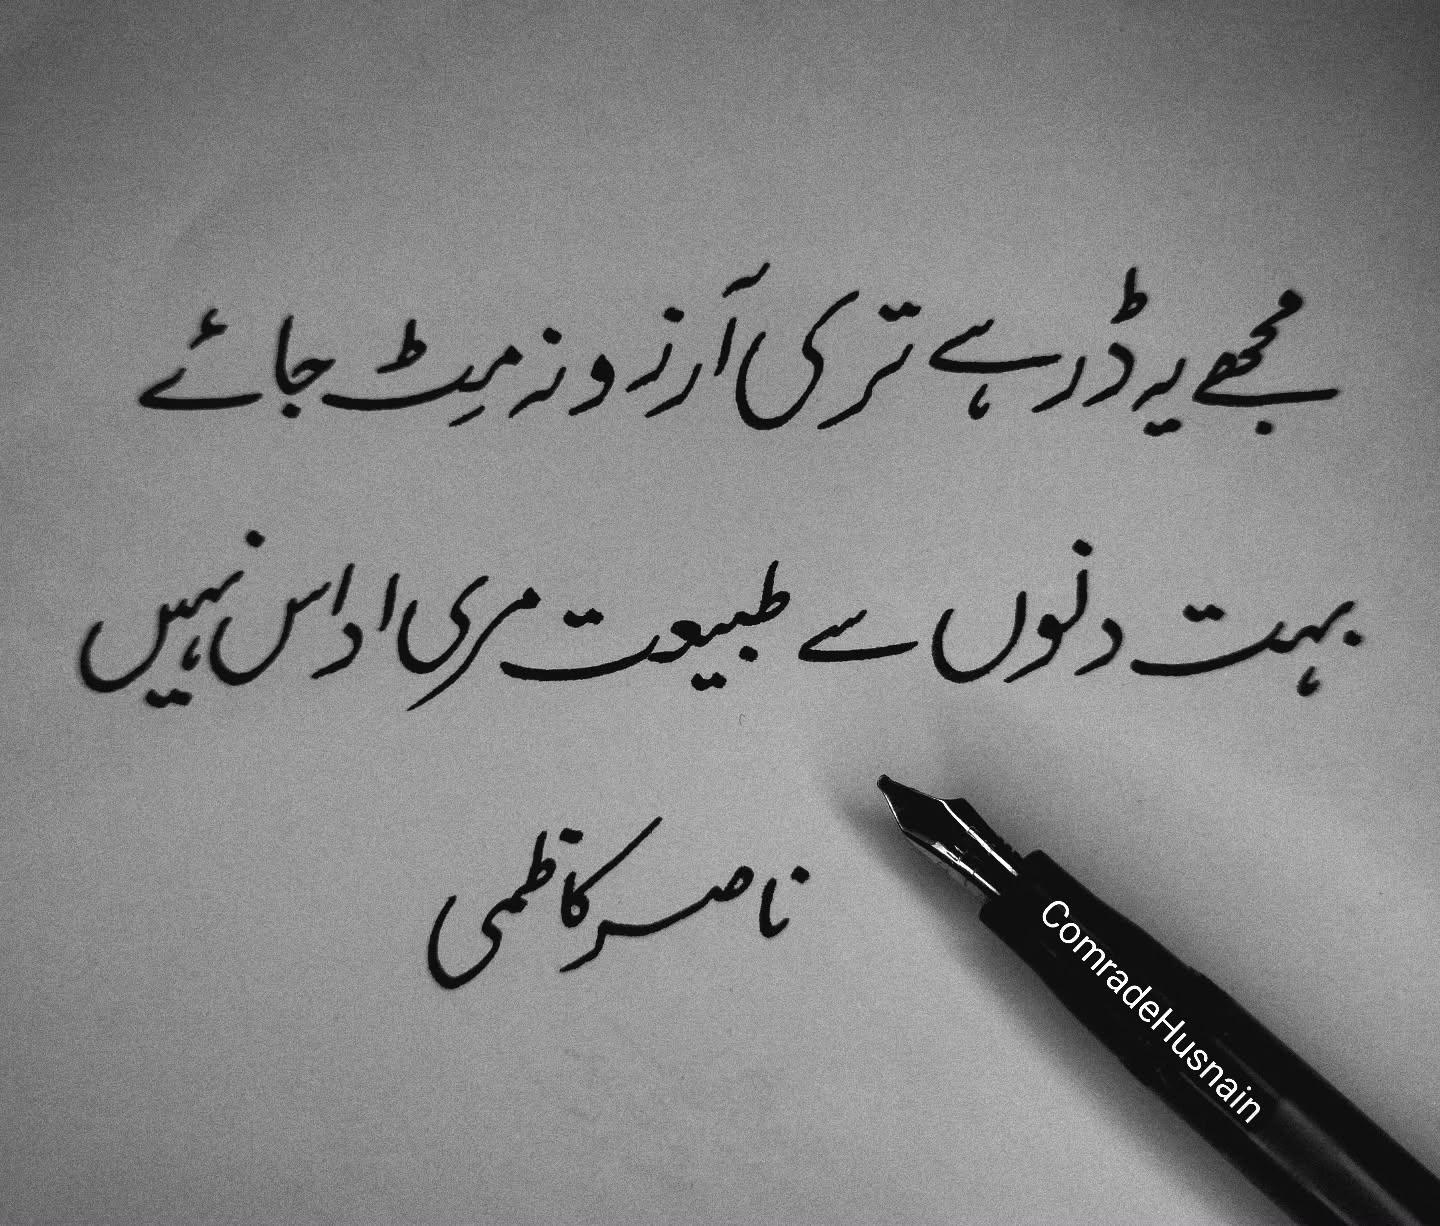 مجھے یہ ڈر ہے تری آرزو نہ مِٹ جائے
بہت دنوں سے طبیعت مری اداس نہیں
ناصر کاظمی
ComradeHusnain